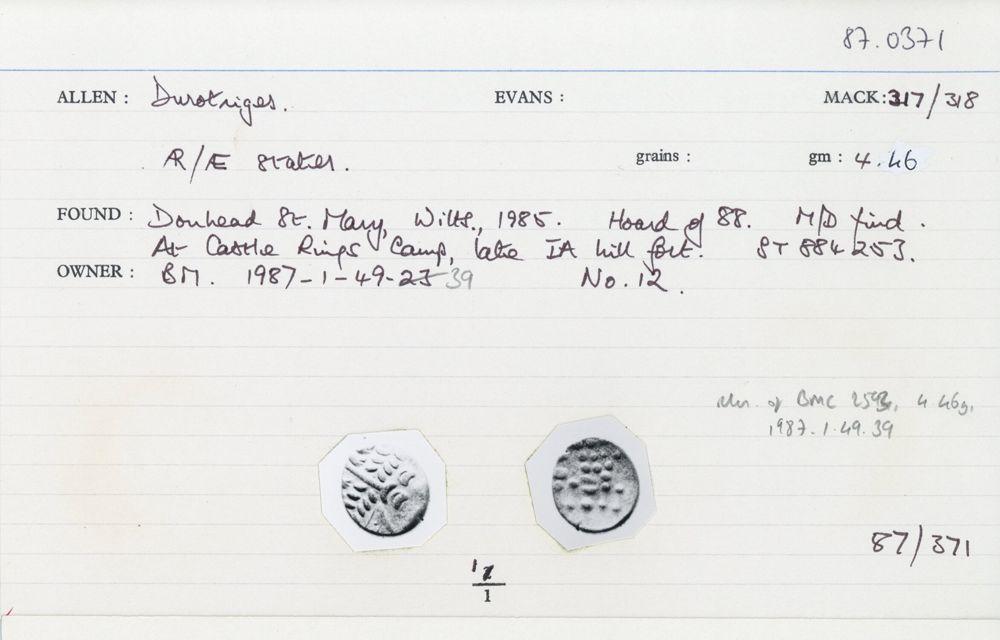 87.0371
ALLEN : Durotriges. EVANS : MACK: 317/318
AR/Æ stater. grains : gm : 4.46
FOUND : Donhead St. Mary, Wilts., 1985. Hoard of 88. M/D find.
At Castle Rings Camp, late IA hill fort. ST 884 253.
OWNER : BM. 1987-1-49-23 39 No. 12.
of BMC 4.46g.
1987.1.49.39
87/371
1
1